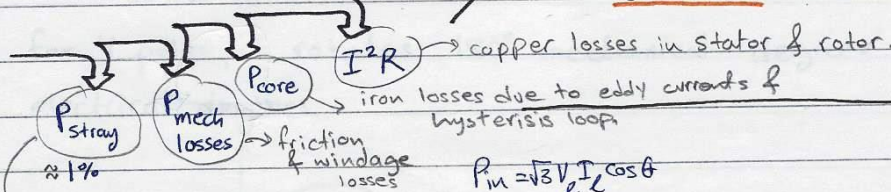 I²R → copper losses in stator & rotor
Pcore → iron losses due to eddy currents &
hysterisis loop
Pstray
≈ 1%
Pmech
losses → friction
& windage
losses
Pin = √3 Vℓ Iℓ cosθ